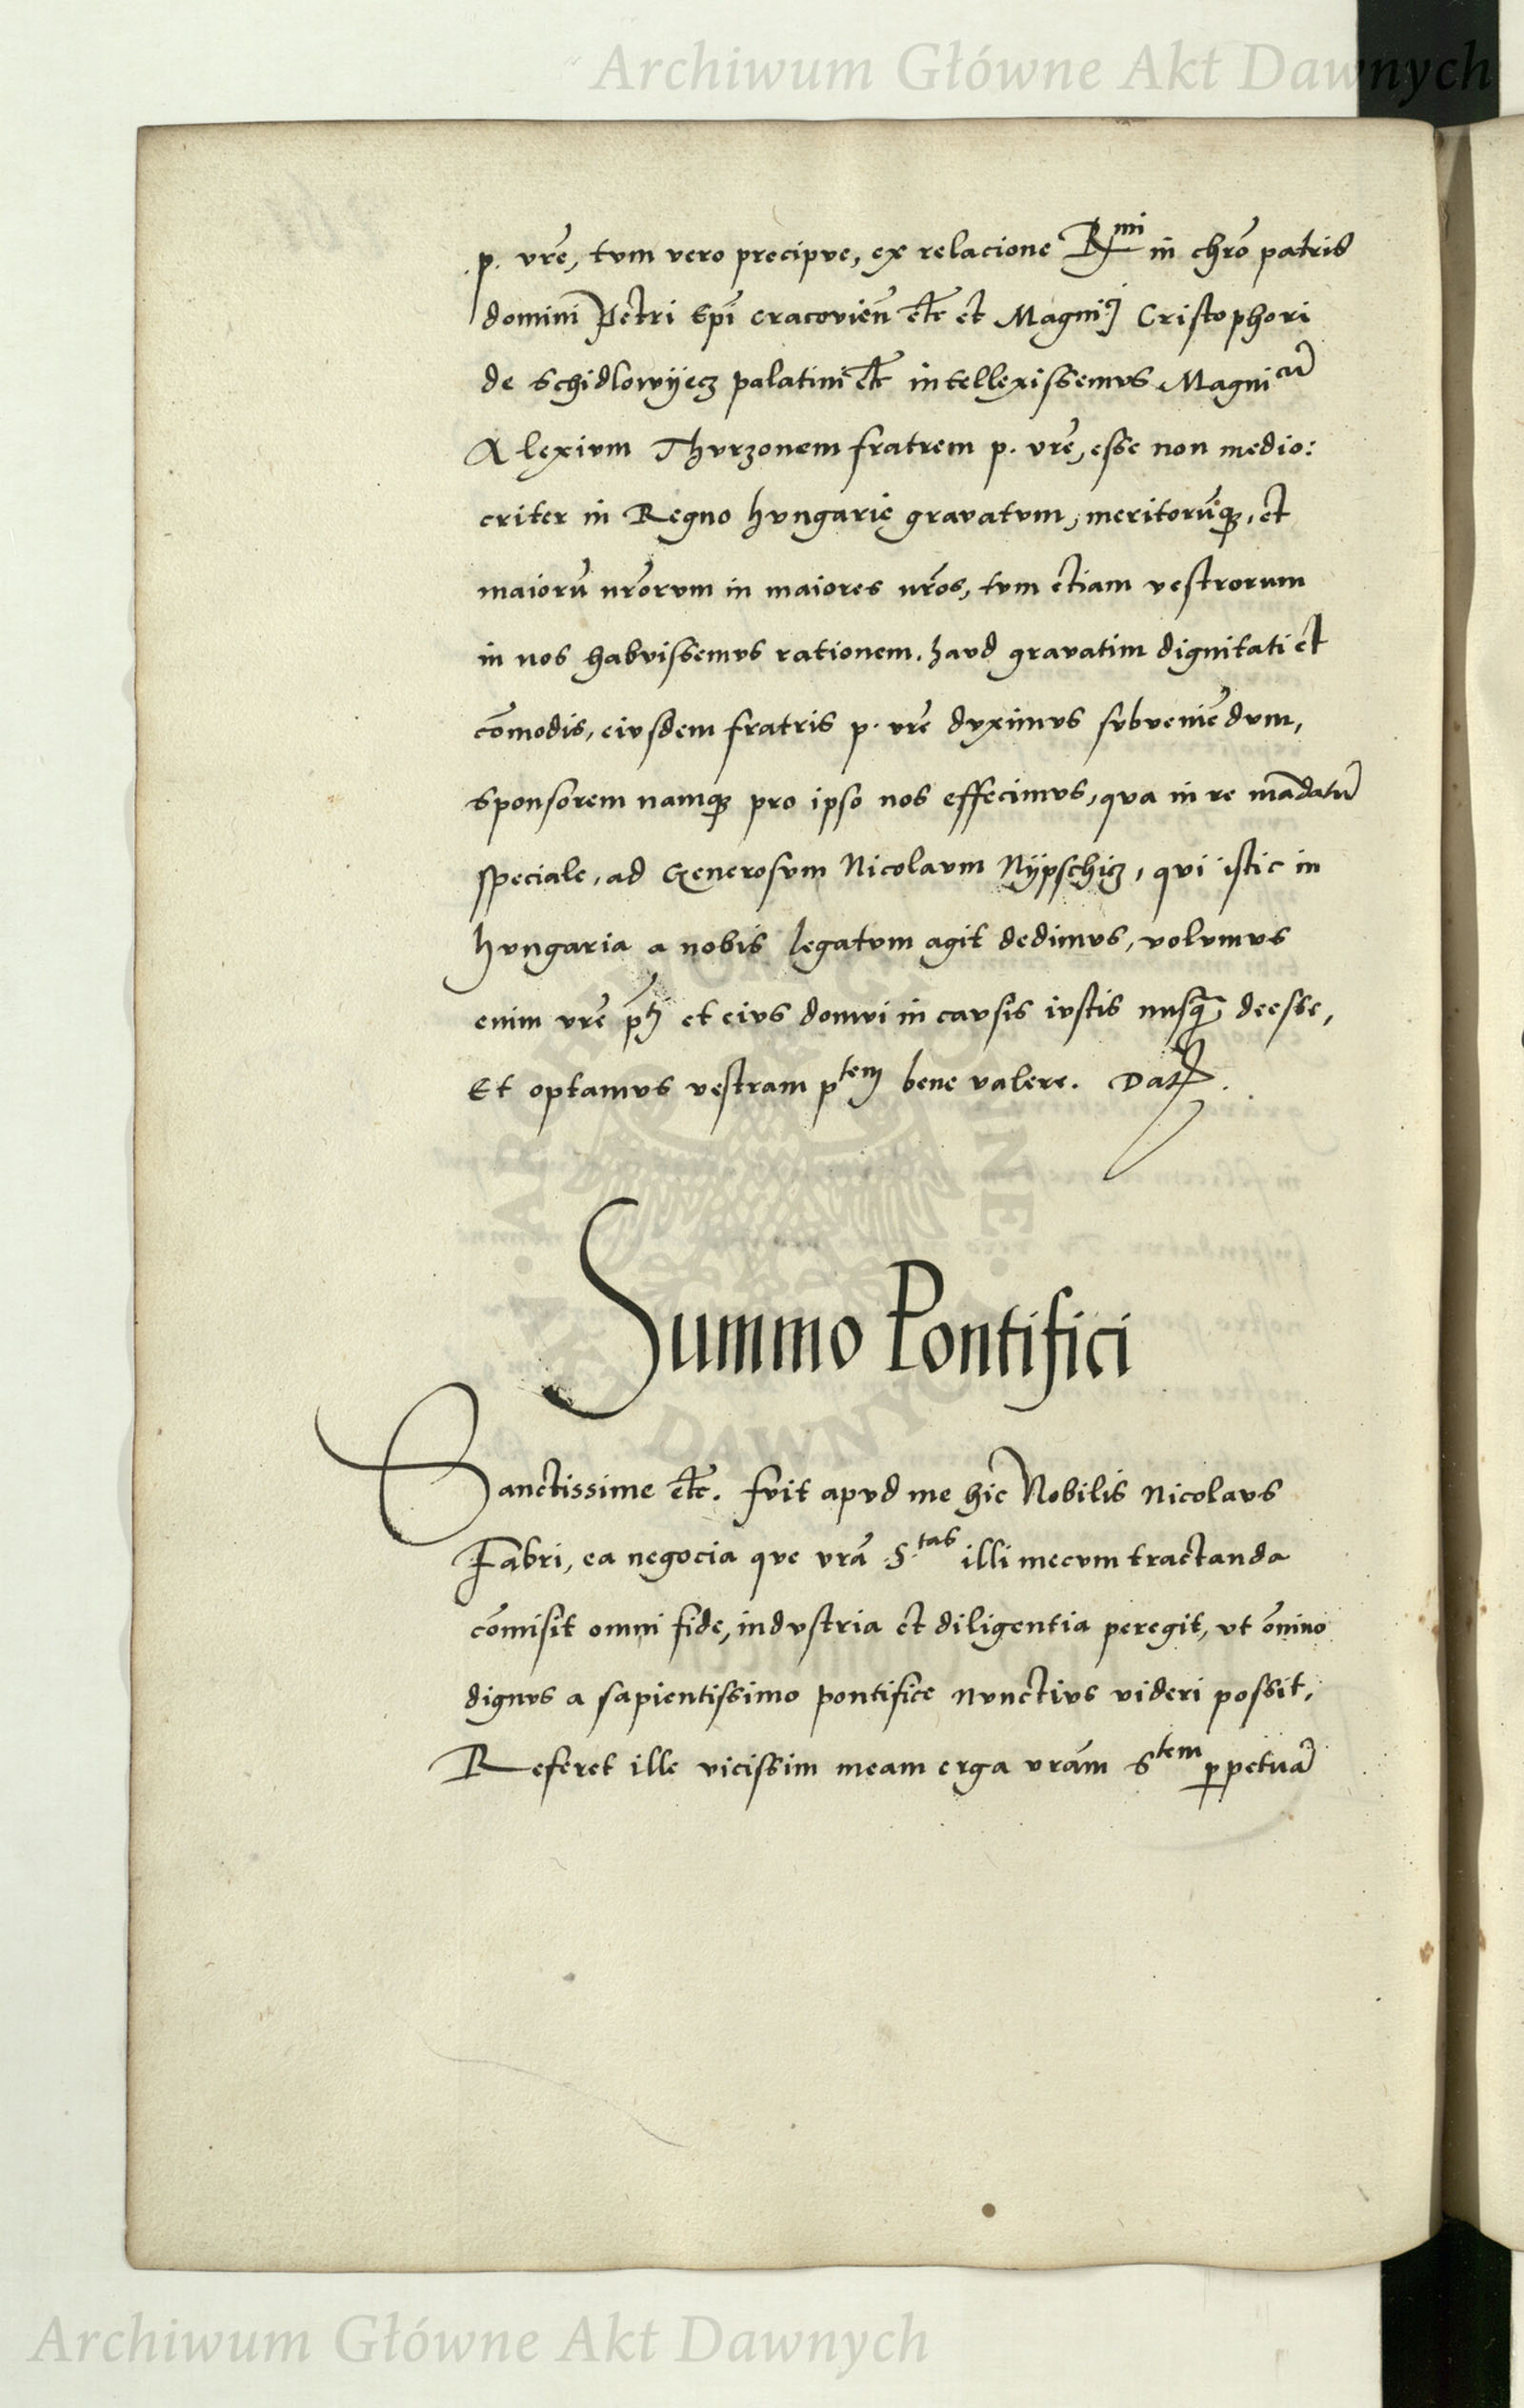 Archiwum Główne Akt Dawnych
p. vrẽ, tvm vero precipve, ex relacione R^mi in chrõ patris
domini Petri Epĩ cracovieñ etc̃ et Magni^ci Cristophori
de Schidlowyecz palatini etc̃ intellexissemvs Magni^cũ
Alexivm Thvrzonem fratrem p. vrẽ, esse non medio:
criter in Regno hvngarię gravatvm, meritorũq3, et
maiorũ nr̃orvm in maiores nr̃os, tvm etiam vestrorum
in nos habvissemvs rationem. havd gravatim dignitati et
cõmodis, eivsdem fratris p. vrẽ dvximvs svbveniẽdvm,
sponsorem namq3 pro ipso nos effecimvs, qva in re mãdatũ
speciale, ad Generosvm Nicolavm Nypschicz, qvi istic in
hvngaria a nobis legatvm agit dedimvs, volvmvs
enim vrẽ p^ti et eivs domvi in cavsis ivstis nusq̃ deesse,
Et optamvs vestram p^tem bene valere. Dat̃.
ARCHIWUM GŁÓWNE AKT DAWNYCH
Summo Pontifici
Sanctissime etc̃. fvit apvd me hic Nobilis Nicolavs
Fabri, ea negocia qve vrã S.^tas illi mecvm tractanda
cõmisit omni fide, indvstria et diligentia peregit, vt õnino
dignvs a sapientissimo pontifice nvnctivs videri possit.
Referet ille vicissim meam erga vrãm S^tem p̱petuã
Archiwum Główne Akt Dawnych